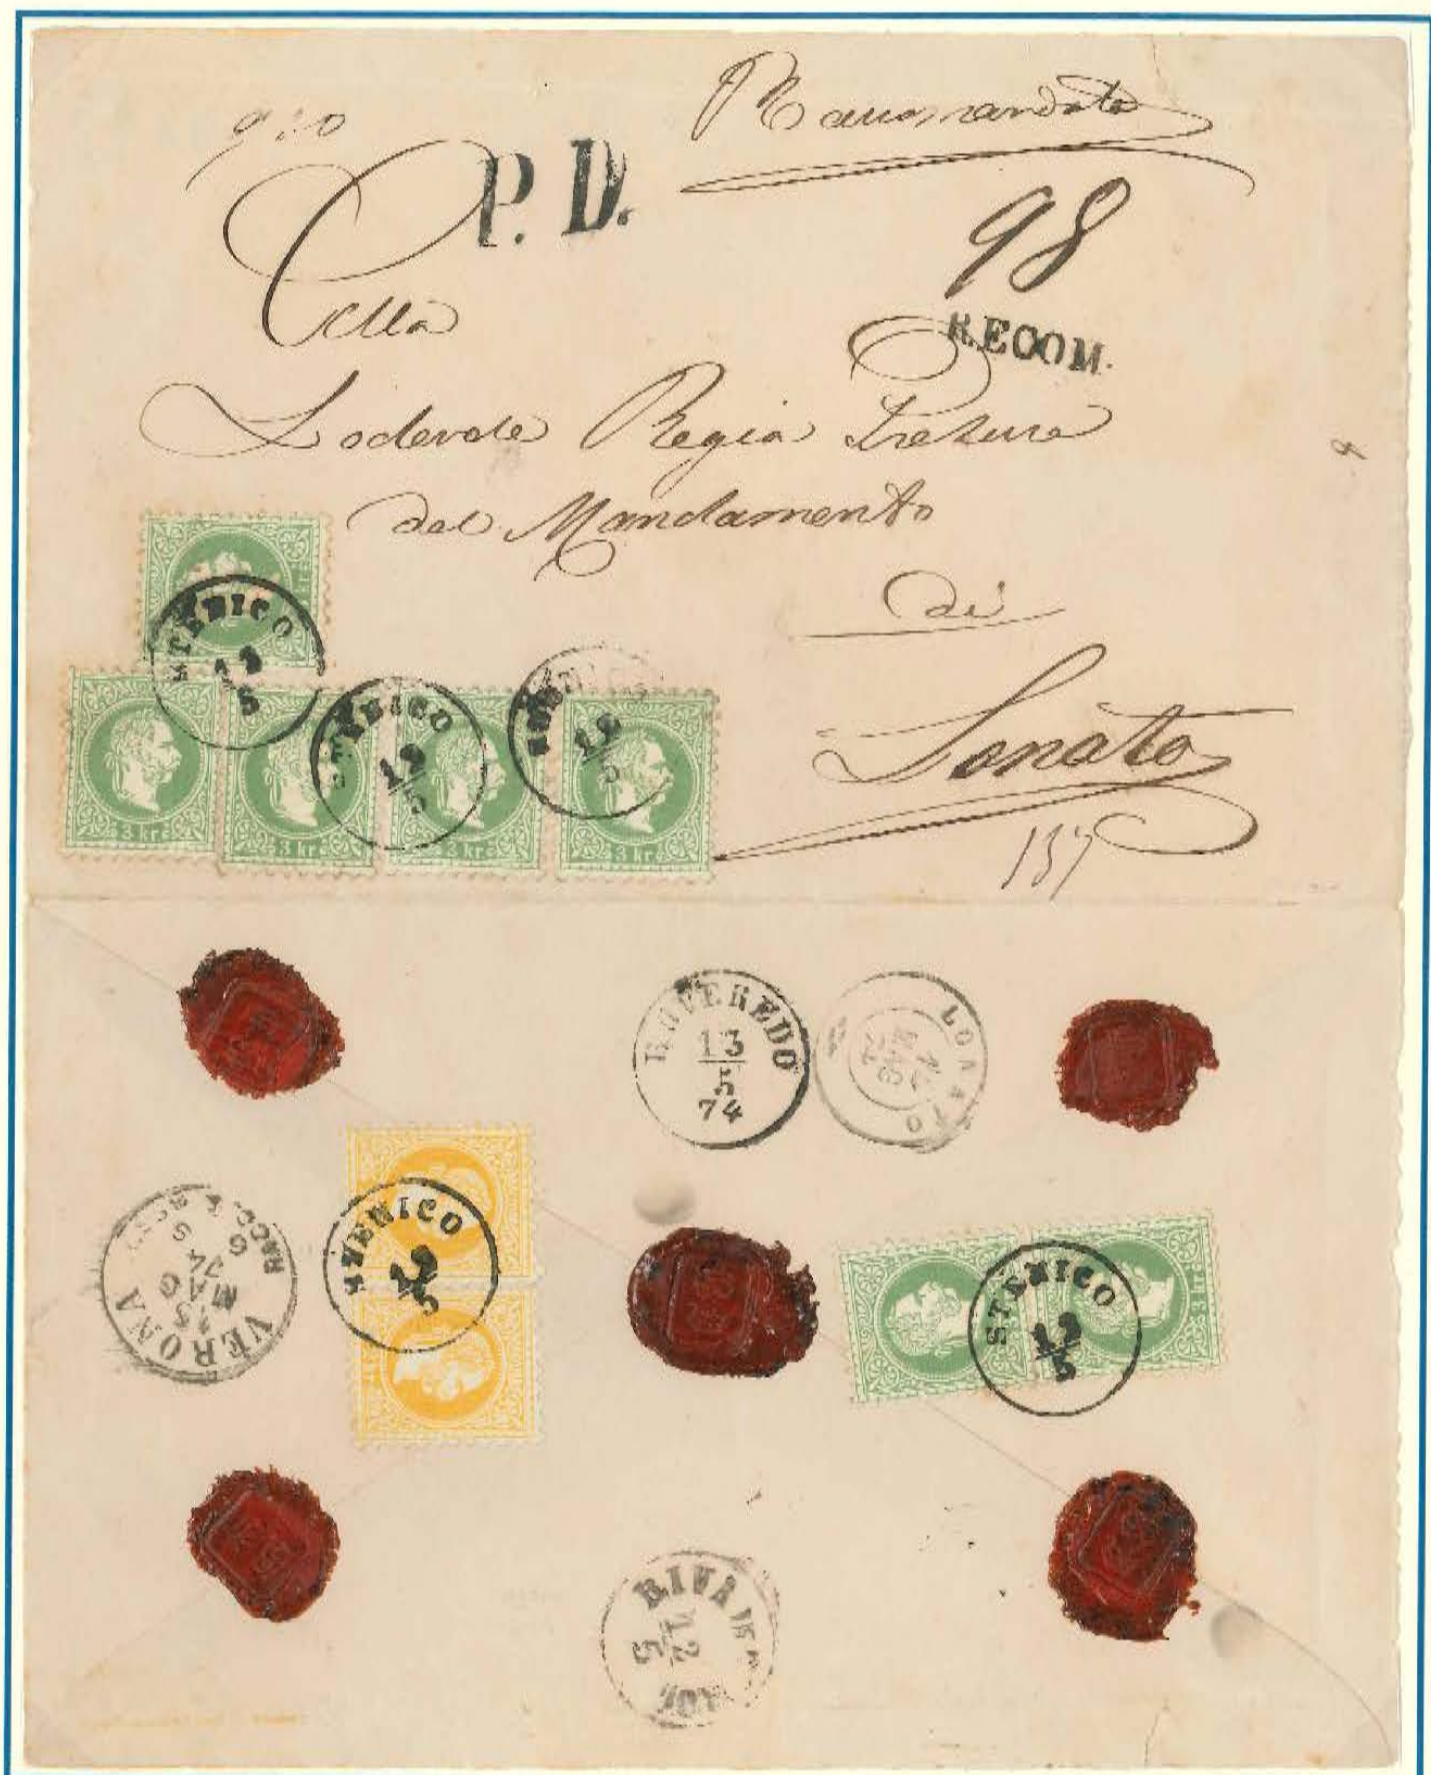 Raccomandata
P. D.
98
RECOM.
Alla
Lodevole Regia Pretura
del Mandamento
di
Lonato
137
STENICO
12
5
STENICO
12
5
STENICO
12
5
3 kr
3 kr
3 kr
3 kr
ROVEREDO
13
5
74
LONATO
14
MAG
74
VERONA
13
MAG
74
STENICO
12
5
STENICO
12
5
3 kr
RIVA
12
5